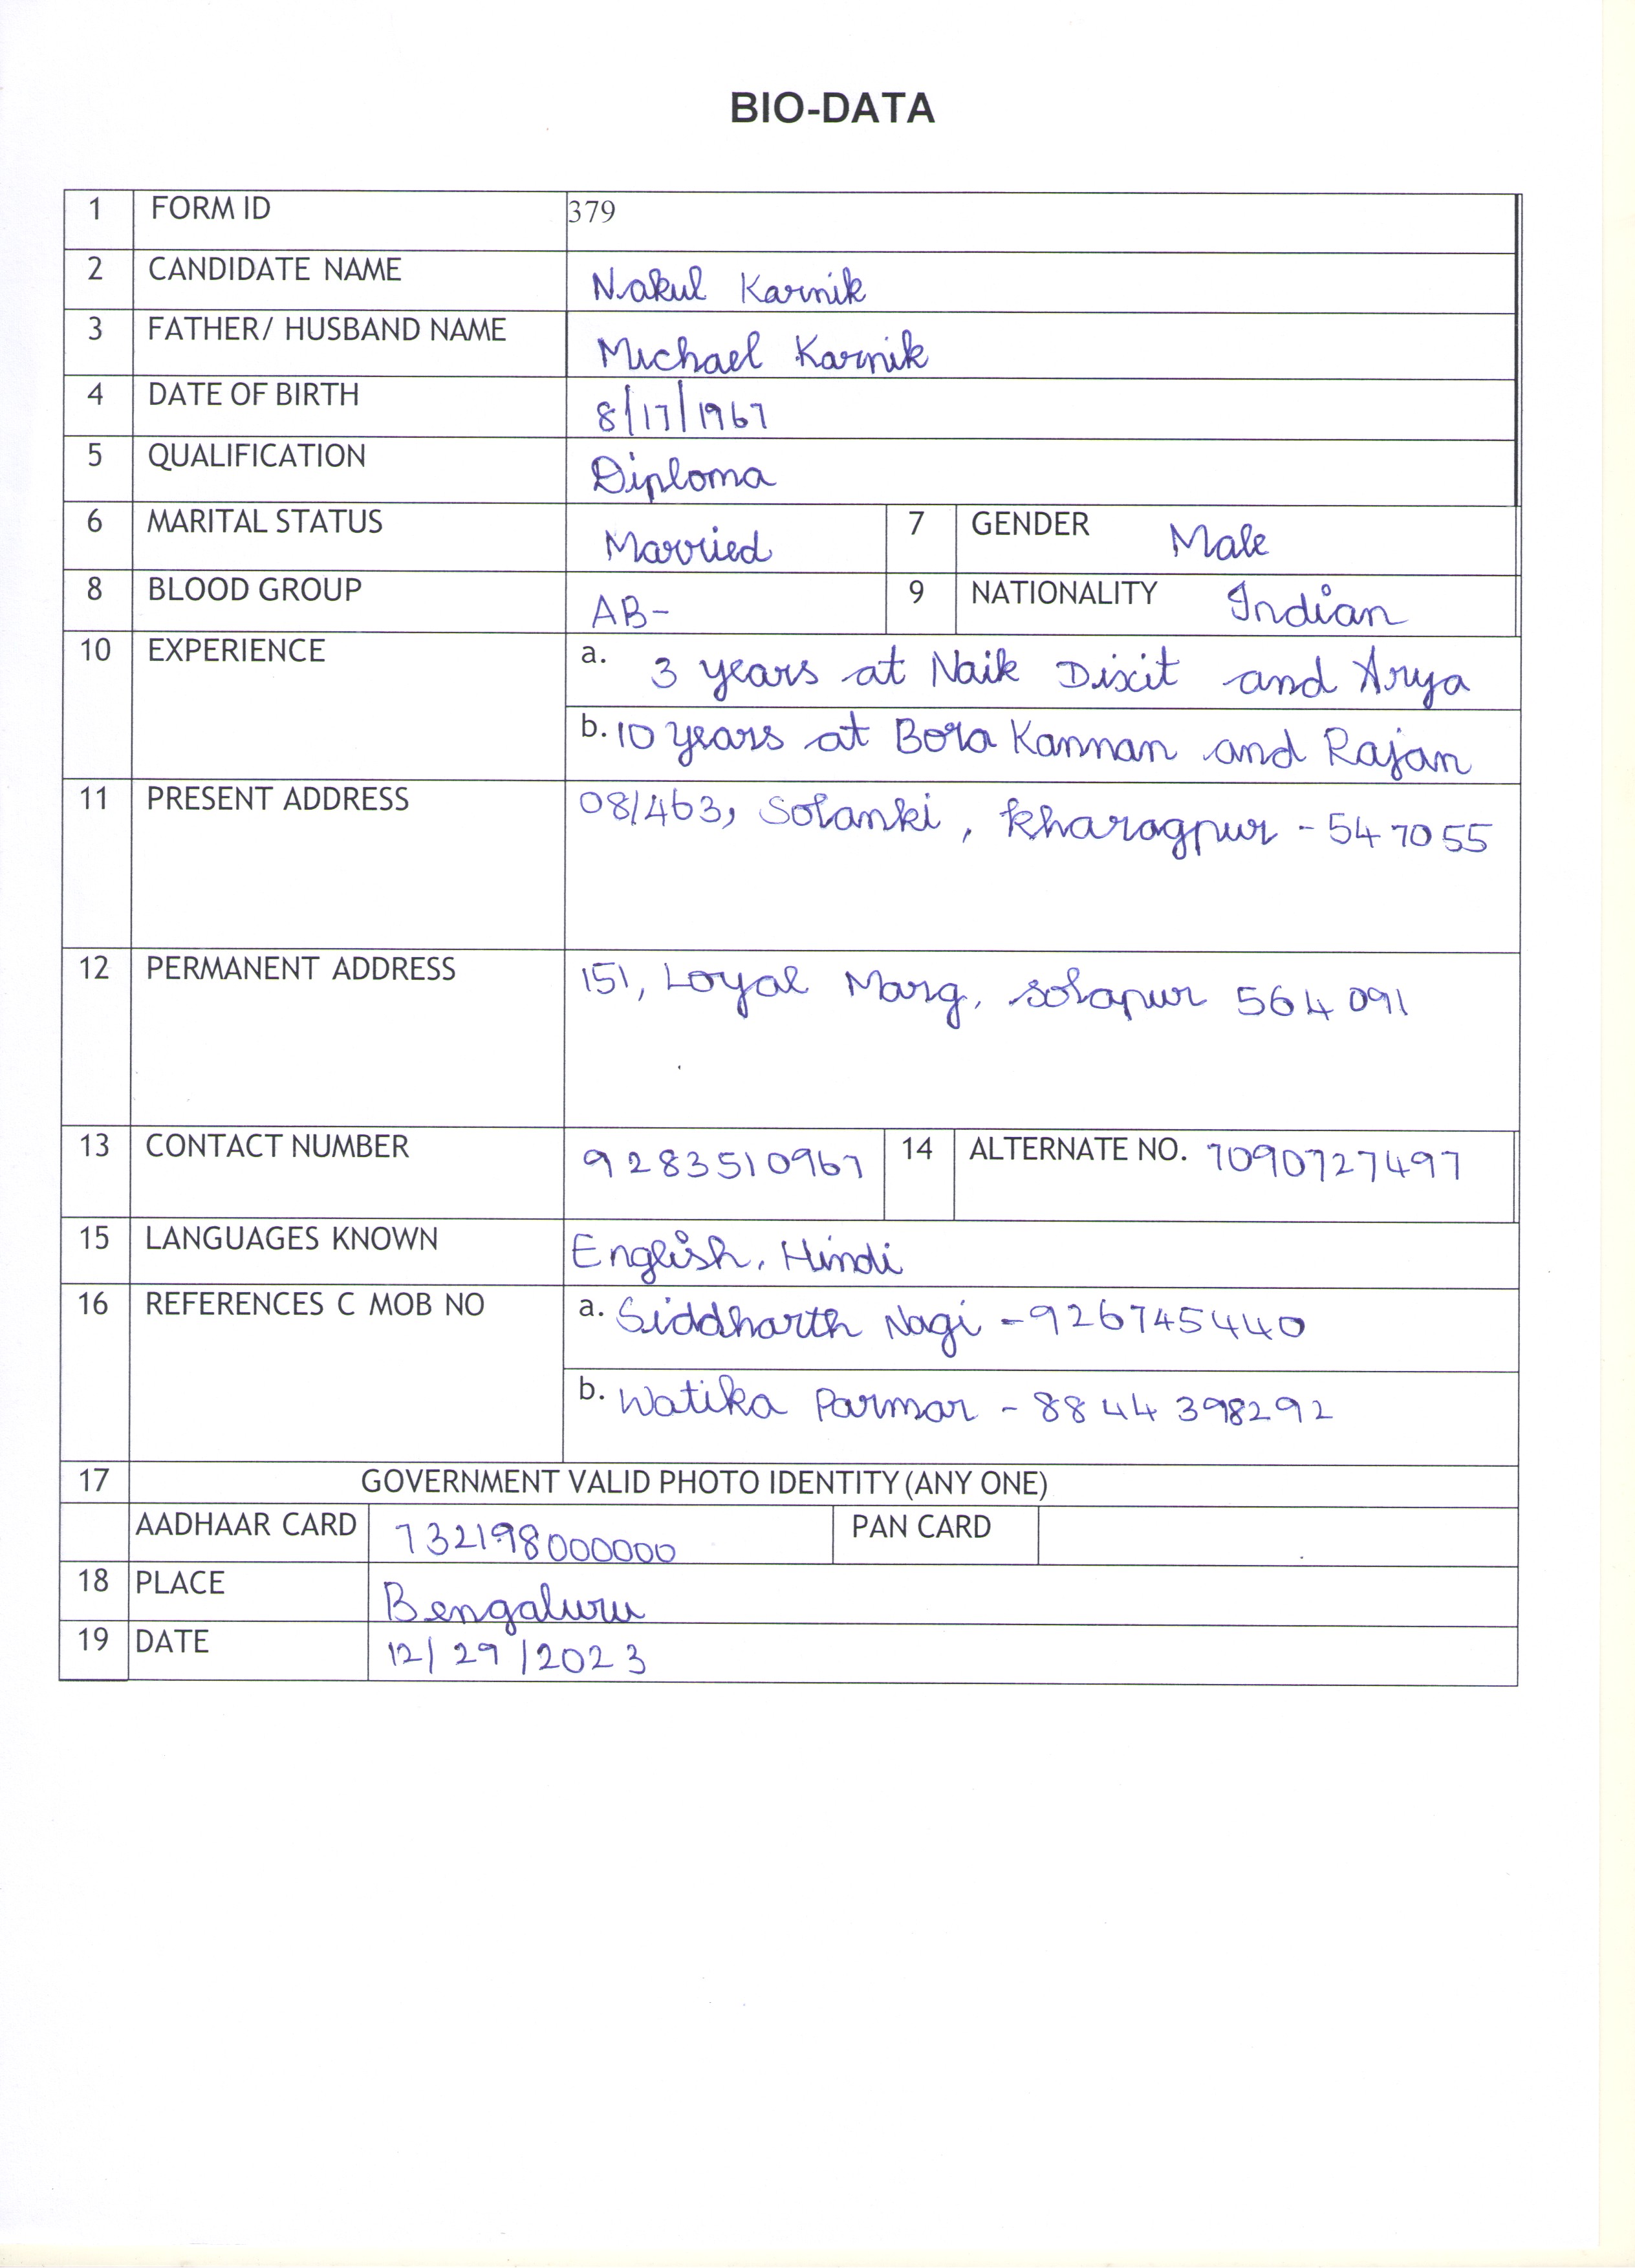 BIO-DATA
1 FORM ID 379
2 CANDIDATE NAME Nakul Karnik
3 FATHER/ HUSBAND NAME Michael Karnik
4 DATE OF BIRTH 8/17/1967
5 QUALIFICATION Diploma
6 MARITAL STATUS Married 7 GENDER Male
8 BLOOD GROUP AB- 9 NATIONALITY Indian
10 EXPERIENCE a. 3 years at Naik Dixit and Arya
b. 10 years at Bora Kannan and Rajan
11 PRESENT ADDRESS 08/463, Solanki, Kharagpur - 547055
12 PERMANENT ADDRESS 151, Loyal Marg, Solapur 564091
13 CONTACT NUMBER 9283510967 14 ALTERNATE NO. 7090727497
15 LANGUAGES KNOWN English, Hindi
16 REFERENCES C MOB NO a. Siddharth Nagi - 926745440
b. Watika Parmar - 8844398292
17 GOVERNMENT VALID PHOTO IDENTITY (ANY ONE)
AADHAAR CARD 732198000000 PAN CARD
18 PLACE Bengaluru
19 DATE 12/29/2023